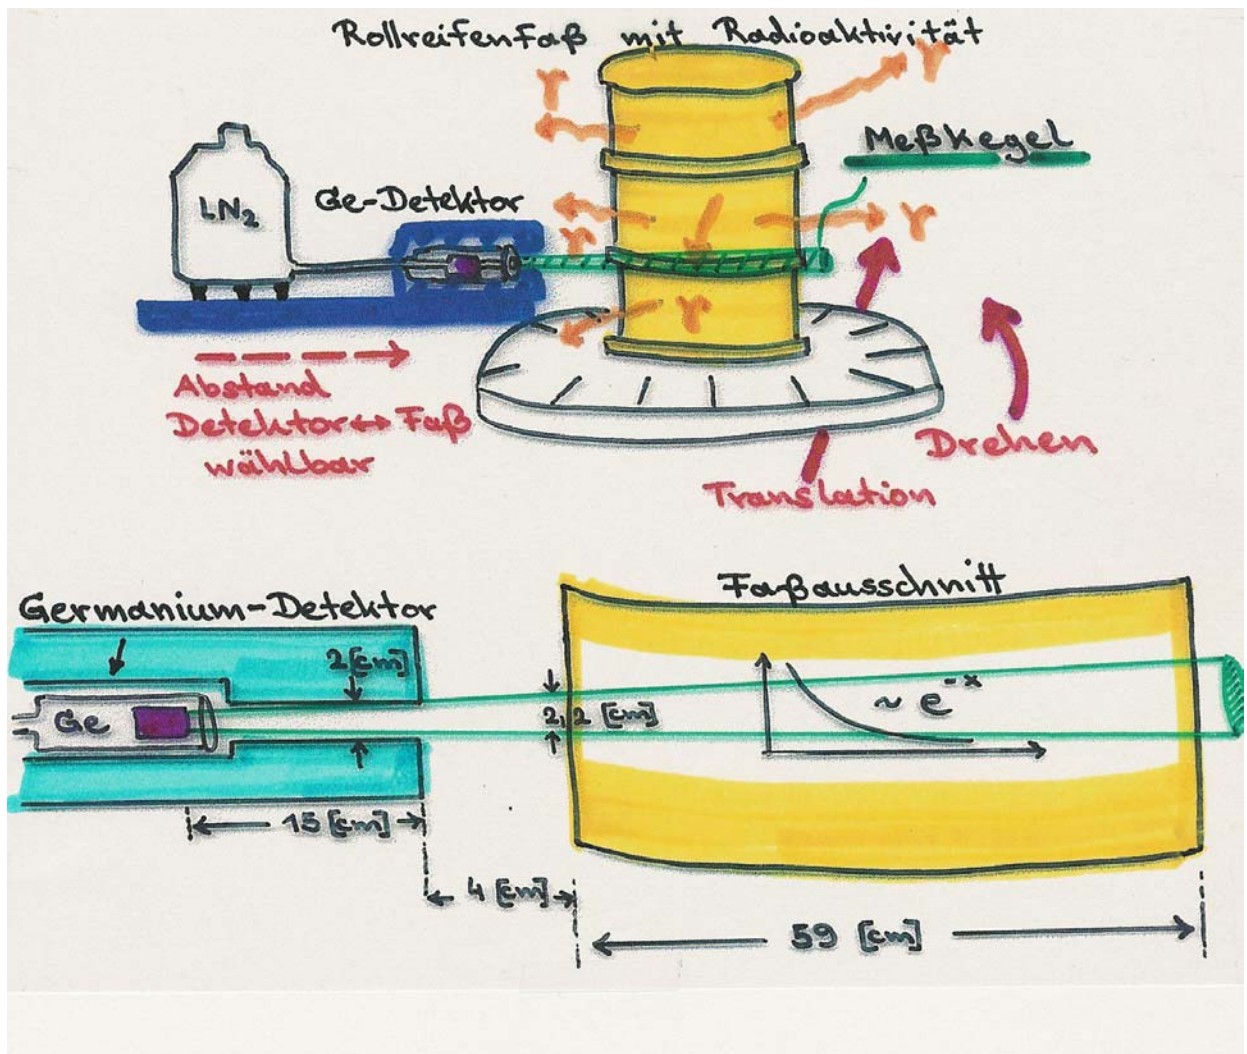 Rollreifenfaß mit Radioaktivität
γ
γ
Meßkegel
LN₂
Ge-Detektor
γ
γ
γ
Abstand
Detektor↔Faß
wählbar
Drehen
Translation
Faßausschnitt
Germanium-Detektor
2 [cm]
Ge
2,2 [cm]
~ e⁻ˣ
15 [cm]
4 [cm]
59 [cm]